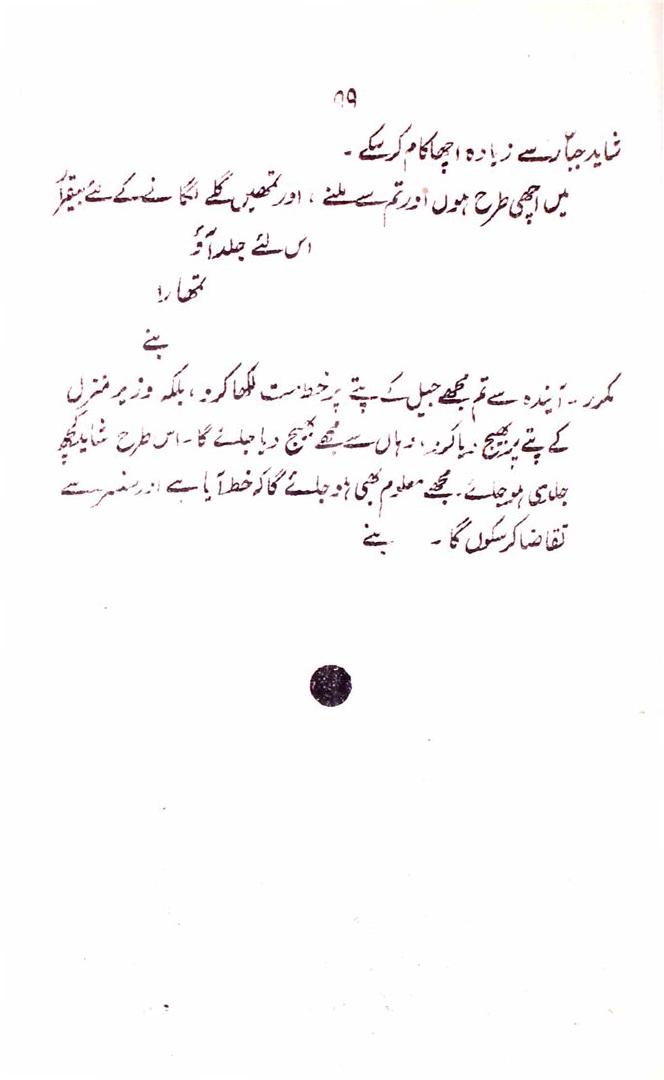 ۹۹
شاید جبّار سے زیادہ اچھا کام کر سکے ۔
میں اچھی طرح ہوں اور تم سے ملنے ، اور تمھیں گلے لگانے کے لئے بیقرار
اس لئے جلد آؤ
تمھارا
بنے
مکرر ۔ آیندہ سے تم مجھے جیل کے پتے پر خط مت لکھا کرو ، بلکہ وزیر منزل
کے پتے پر بھیج دیا کرو ، وہاں سے مجھے بھیج دیا جائے گا ۔ اس طرح شاید کچھ
جلدی ہو جائے ۔ مجھے معلوم بھی ہو جائے گا کہ خط آیا ہے اور سنسر سے
تقاضا کر سکوں گا ۔ بنے